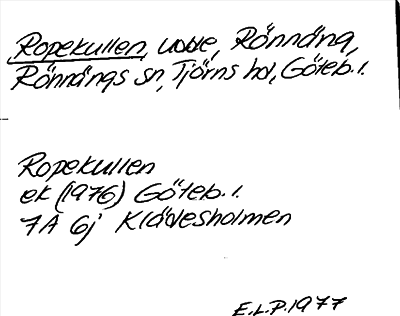 Ropekullen, udde, Rönnäng,
Rönnängs sn, Tjörns hd, Göteb. l.
Ropekullen
ek (1976) Göteb. l.
7A 6j Klädesholmen
E.L.P. 1977